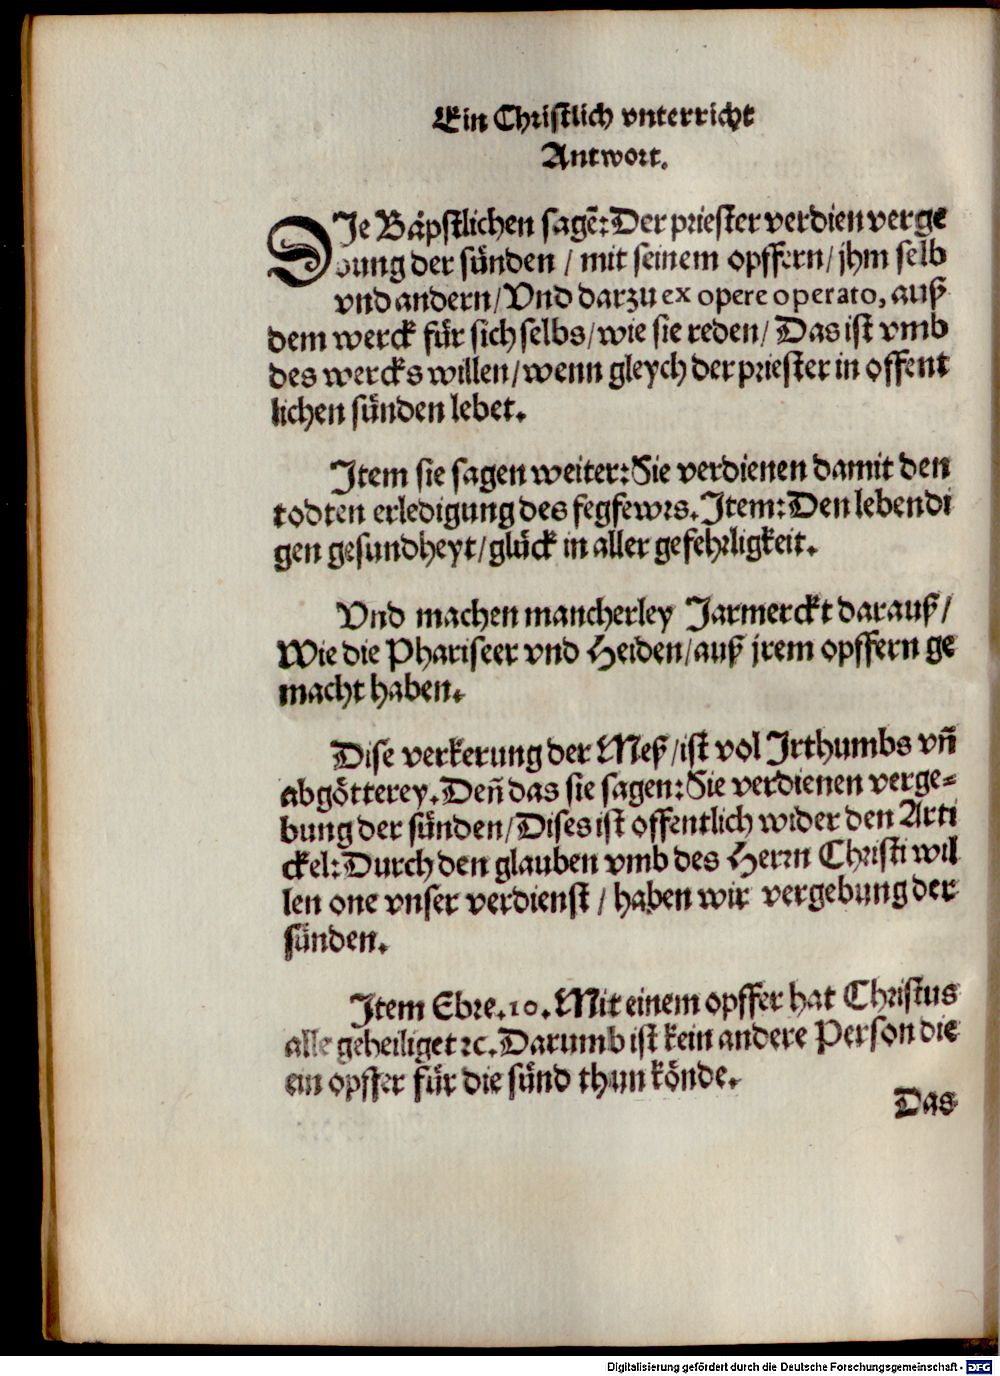 Ein Christlich vnterricht
Antwort.
DJe Bäpstlichen sagẽ: Der priester verdien verge
bung der sünden / mit seinem opffern / jhm selb
vnd andern / Vnd darzu ex opere operato, auß
dem werck für sich selbs / wie sie reden / Das ist vmb
des wercks willen / wenn gleych der priester in offent
lichen sünden lebet.
Jtem sie sagen weiter: Sie verdienen damit den
todten erledigung des fegfewrs. Jtem: Den lebendi
gen gesundheyt / glück in aller gefehrligkeit.
Vnd machen mancherley Jarmerckt darauß /
Wie die Phariseer vnd Heiden / auß jrem opffern ge
macht haben.
Dise verkerung der Meß / ist vol Jrthumbs vñ
abgötterey. Deñ das sie sagen: Sie verdienen verge-
bung der sünden / Dises ist offentlich wider den Arti
ckel: Durch den glauben vmb des Herrn Christi wil
len one vnser verdienst / haben wir vergebung der
sünden.
Jtem Ebre. 10. Mit einem opffer hat Christus
alle geheiliget ꝛc. Darumb ist kein andere Person die
ein opffer für die sünd thun könde.
Das
Digitalisierung gefördert durch die Deutsche Forschungsgemeinschaft - DFG